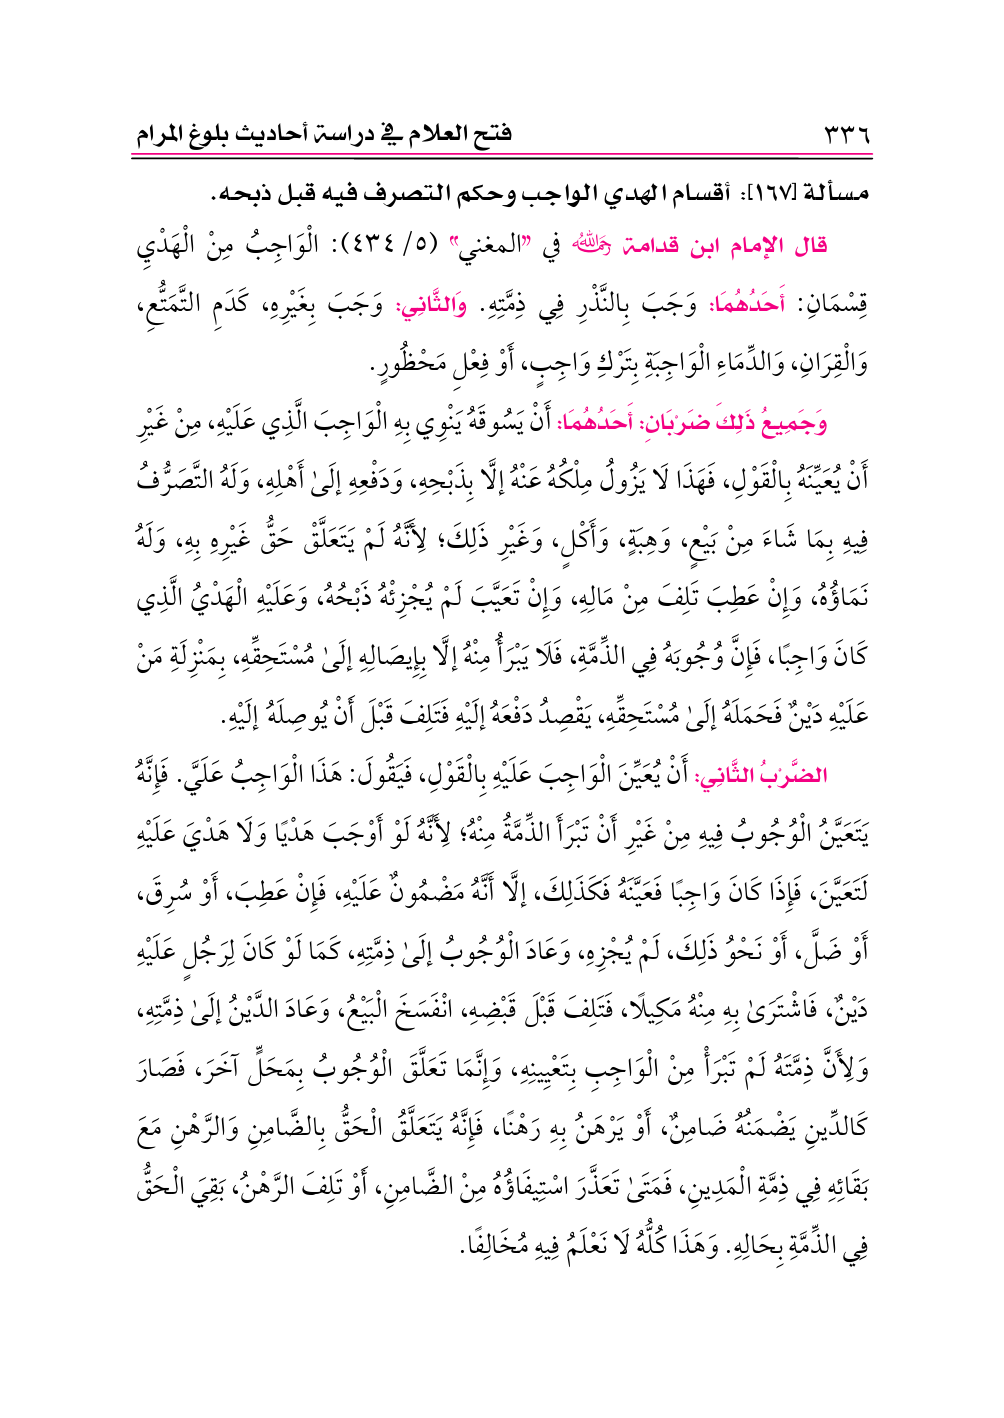 ٣٣٦ فتح العلام في دراسة أحاديث بلوغ المرام
مسألة [١٦٧]: أقسام الهدي الواجب وحكم التصرف فيه قبل ذبحه.
قال الإمام ابن قدامة رحمه الله في "المغني" (٥/ ٤٣٤): الْوَاجِبُ مِنْ الْهَدْيِ
قِسْمَانِ: أَحَدُهُمَا: وَجَبَ بِالنَّذْرِ فِي ذِمَّتِهِ. وَالثَّانِي: وَجَبَ بِغَيْرِهِ، كَدَمِ التَّمَتُّعِ،
وَالْقِرَانِ، وَالدِّمَاءِ الْوَاجِبَةِ بِتَرْكِ وَاجِبٍ، أَوْ فِعْلِ مَحْظُورٍ.
وَجَمِيعُ ذَلِكَ ضَرْبَانِ: أَحَدُهُمَا: أَنْ يَسُوقَهُ يَنْوِي بِهِ الْوَاجِبَ الَّذِي عَلَيْهِ، مِنْ غَيْرِ
أَنْ يُعَيِّنَهُ بِالْقَوْلِ، فَهَذَا لَا يَزُولُ مِلْكُهُ عَنْهُ إلَّا بِذَبْحِهِ، وَدَفْعِهِ إلَىٰ أَهْلِهِ، وَلَهُ التَّصَرُّفُ
فِيهِ بِمَا شَاءَ مِنْ بَيْعٍ، وَهِبَةٍ، وَأَكْلٍ، وَغَيْرِ ذَلِكَ؛ لِأَنَّهُ لَمْ يَتَعَلَّقْ حَقُّ غَيْرِهِ بِهِ، وَلَهُ
نَمَاؤُهُ، وَإِنْ عَطِبَ تَلِفَ مِنْ مَالِهِ، وَإِنْ تَعَيَّبَ لَمْ يُجْزِئْهُ ذَبْحُهُ، وَعَلَيْهِ الْهَدْيُ الَّذِي
كَانَ وَاجِبًا، فَإِنَّ وُجُوبَهُ فِي الذِّمَّةِ، فَلَا يَبْرَأُ مِنْهُ إلَّا بِإِيصَالِهِ إلَىٰ مُسْتَحِقِّهِ، بِمَنْزِلَةِ مَنْ
عَلَيْهِ دَيْنٌ فَحَمَلَهُ إلَىٰ مُسْتَحِقِّهِ، يَقْصِدُ دَفْعَهُ إلَيْهِ فَتَلِفَ قَبْلَ أَنْ يُوصِلَهُ إلَيْهِ.
الضَّرْبُ الثَّانِي: أَنْ يُعَيِّنَ الْوَاجِبَ عَلَيْهِ بِالْقَوْلِ، فَيَقُولَ: هَذَا الْوَاجِبُ عَلَيَّ. فَإِنَّهُ
يَتَعَيَّنُ الْوُجُوبُ فِيهِ مِنْ غَيْرِ أَنْ تَبْرَأَ الذِّمَّةُ مِنْهُ؛ لِأَنَّهُ لَوْ أَوْجَبَ هَدْيًا وَلَا هَدْيَ عَلَيْهِ
لَتَعَيَّنَ، فَإِذَا كَانَ وَاجِبًا فَعَيَّنَهُ فَكَذَلِكَ، إلَّا أَنَّهُ مَضْمُونٌ عَلَيْهِ، فَإِنْ عَطِبَ، أَوْ سُرِقَ،
أَوْ ضَلَّ، أَوْ نَحْوُ ذَلِكَ، لَمْ يُجْزِهِ، وَعَادَ الْوُجُوبُ إلَىٰ ذِمَّتِهِ، كَمَا لَوْ كَانَ لِرَجُلٍ عَلَيْهِ
دَيْنٌ، فَاشْتَرَىٰ بِهِ مِنْهُ مَكِيلًا، فَتَلِفَ قَبْلَ قَبْضِهِ، انْفَسَخَ الْبَيْعُ، وَعَادَ الدَّيْنُ إلَىٰ ذِمَّتِهِ،
وَلِأَنَّ ذِمَّتَهُ لَمْ تَبْرَأْ مِنْ الْوَاجِبِ بِتَعْيِينِهِ، وَإِنَّمَا تَعَلَّقَ الْوُجُوبُ بِمَحَلٍّ آخَرَ، فَصَارَ
كَالدِّينِ يَضْمَنُهُ ضَامِنٌ، أَوْ يَرْهَنُ بِهِ رَهْنًا، فَإِنَّهُ يَتَعَلَّقُ الْحَقُّ بِالضَّامِنِ وَالرَّهْنِ مَعَ
بَقَائِهِ فِي ذِمَّةِ الْمَدِينِ، فَمَتَىٰ تَعَذَّرَ اسْتِيفَاؤُهُ مِنْ الضَّامِنِ، أَوْ تَلِفَ الرَّهْنُ، بَقِيَ الْحَقُّ
فِي الذِّمَّةِ بِحَالِهِ. وَهَذَا كُلُّهُ لَا نَعْلَمُ فِيهِ مُخَالِفًا.